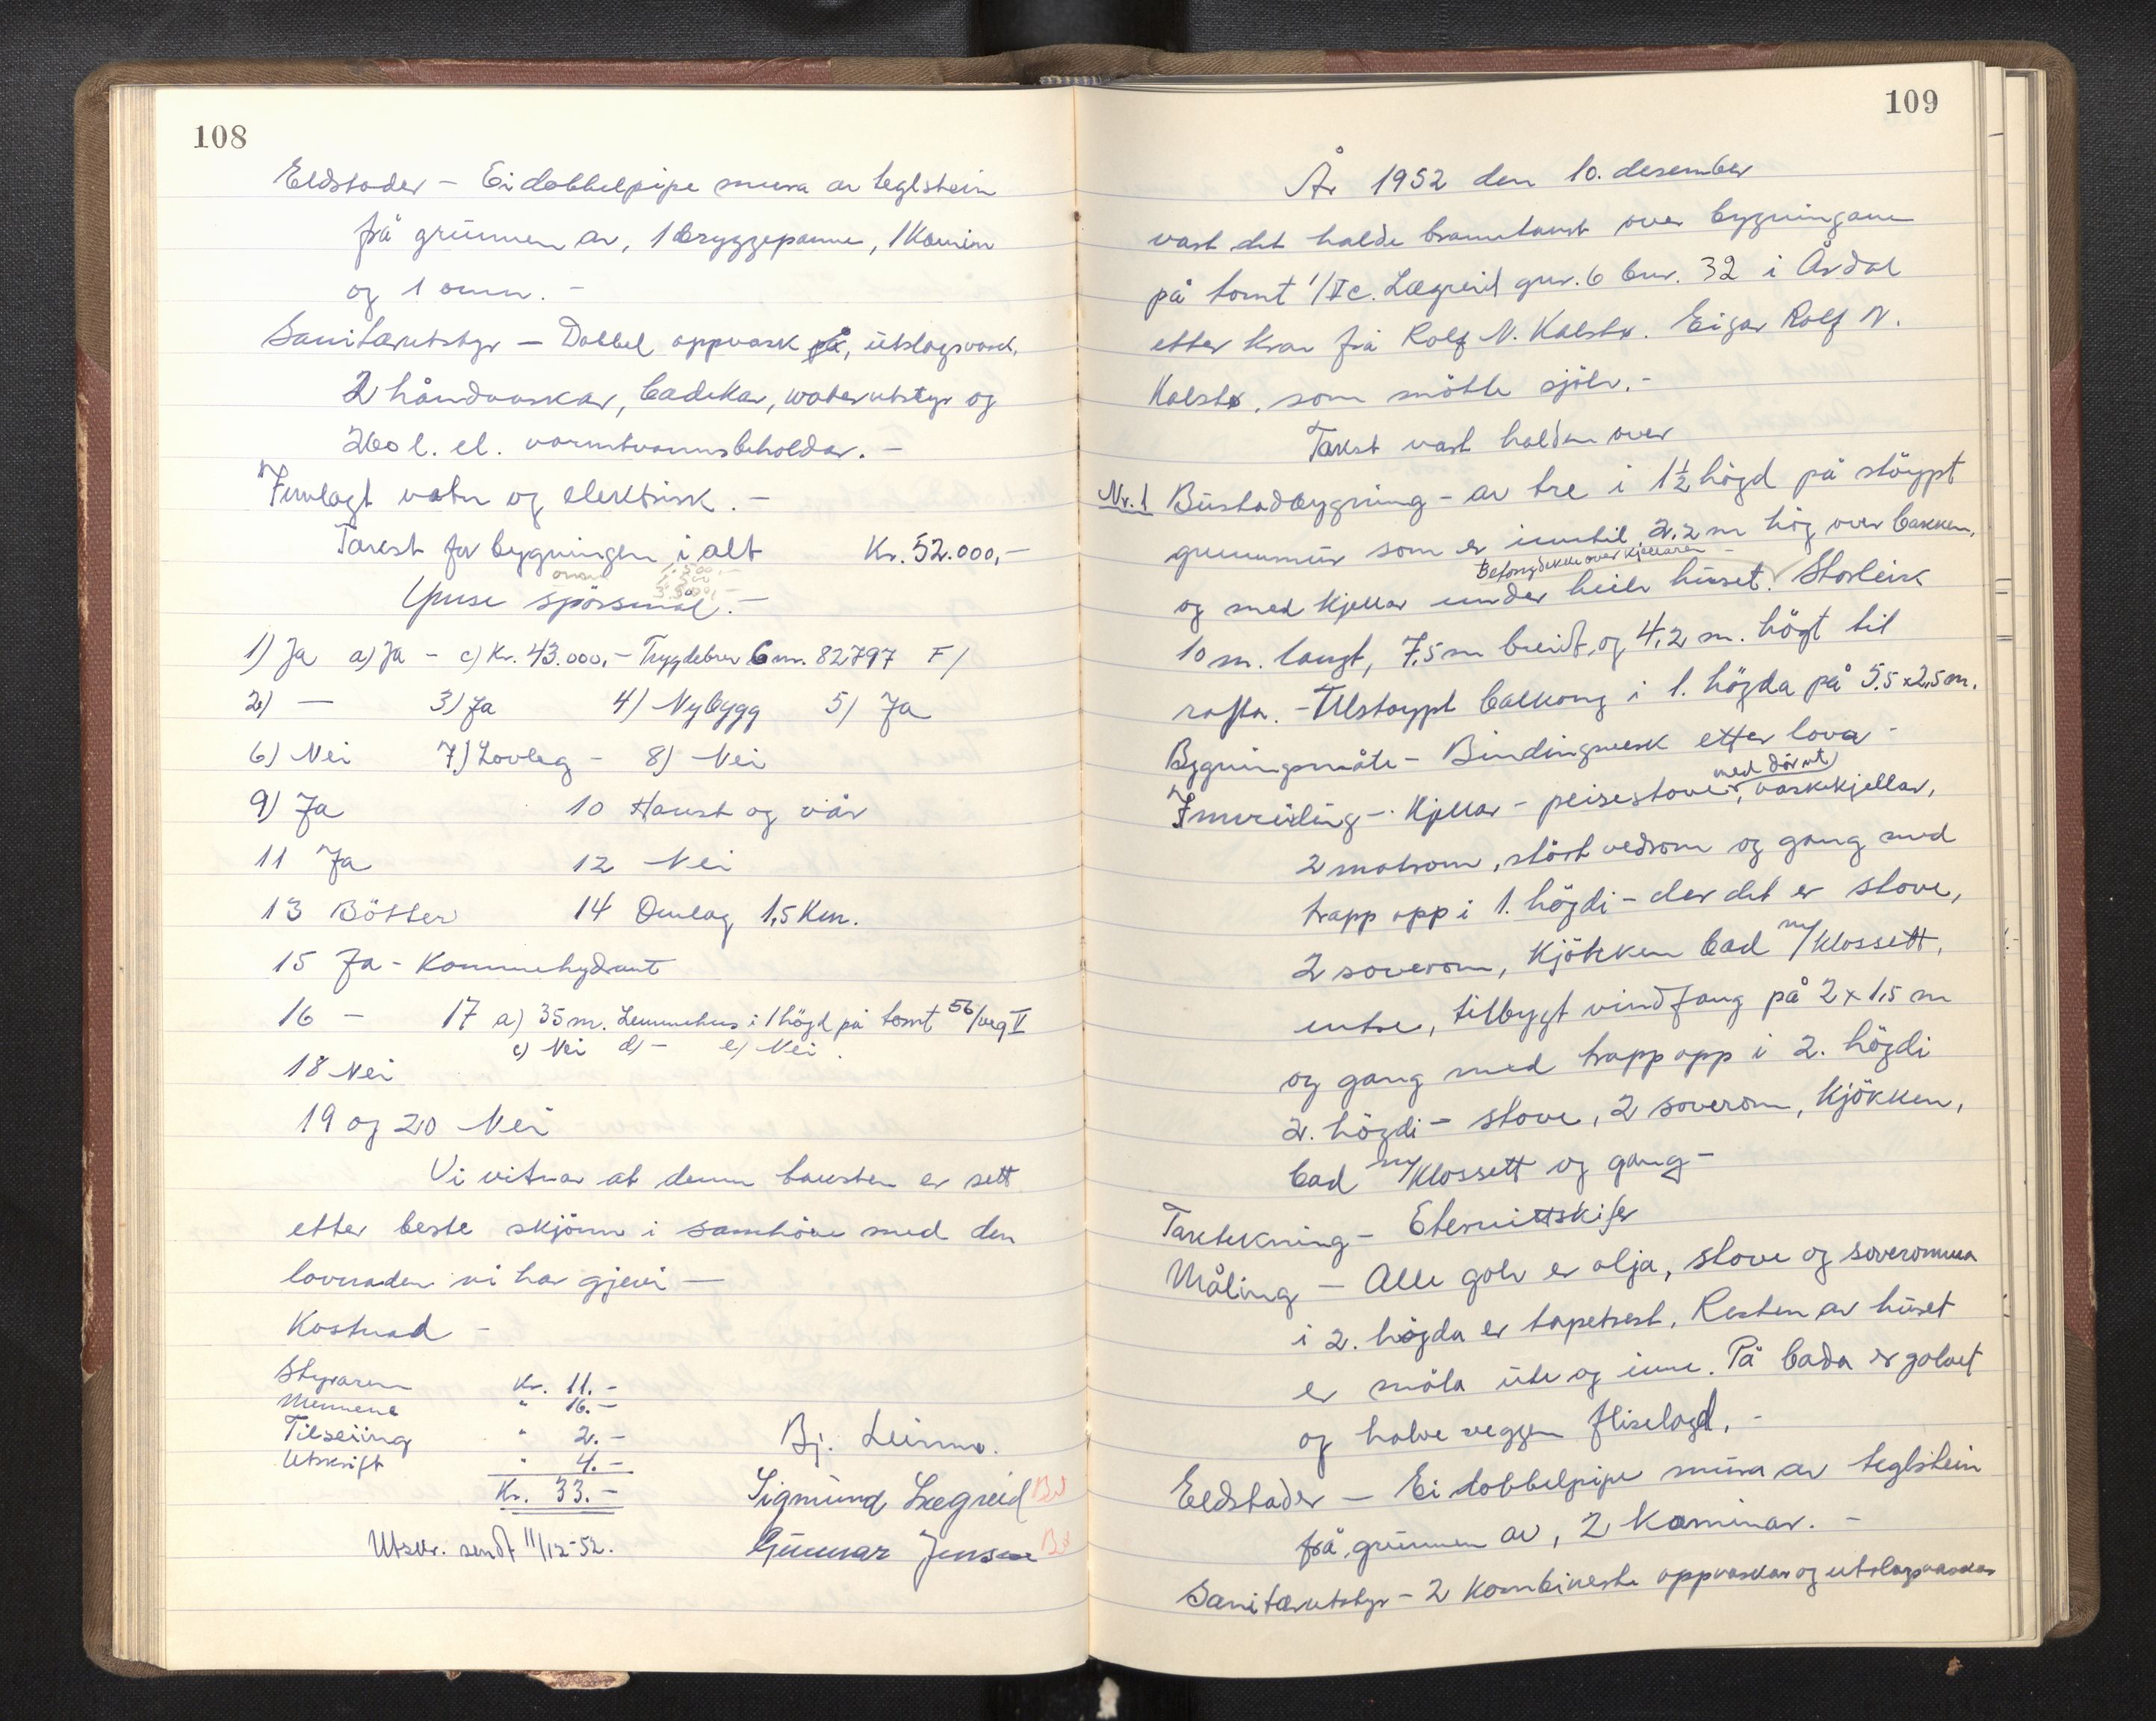 108
Eldstader - Ei dobbelpipe mura av teglstein
frå grunnen av, 1 bryggepanne, 1 Kamin
og 1 omn. -
Sanitærutstyr - Dobbel oppvask, utslagsvask,
2 håndvaskar, badekar, waterutstyr og
260 l. el. varmtvannsbeholdar. -
Innlagt vatn og elektrisk. -
Takst for bygningen i alt Kr. 52.000,-
1.500,-
Ymse spörsmål. -
1) Ja a) Ja - c) Kr. 43.000,- Trygdebrev nr. 82797 F/
2) - 3) Ja 4) Nybygg 5) Ja
6) Nei 7) Lovleg - 8) Nei
9) Ja 10 Haust og vår
11 Ja 12 Nei
13 Bötter 14 Omlag 1,5 Km.
15 Ja - Kommehydrant
16 - 17 a) 35 m. Lemmehus i 1 högd på tomt 56/veg V
c) Nei d) - e) Nei.
18 Nei
19 og 20 Nei
Vi vitnar at denne taksten er sett
etter beste skjönn i samhöve med den
lovnaden vi har gjevi -
Kostnad -
Styraren Kr. 11.-
Mennene " 16.-
Tilseiing " 2.-
Utskrift " 4.-
Kr. 33.-
Bj. Leirmo.
Sigmund Lægreid
Gunnar Jensen
Utskr. sendt 11/12-52.
109
År 1952 den 10. desember
vart det halde branntakst over bygningane
på tomt 1/I c. Lægreid gnr. 6 bnr. 32 i Årdal
etter krav frå Rolf N. Kalstø. Eigar Rolf N.
Kalstø, som mötte sjölv. -
Takst vart halden over
Nr. 1 Bustadbygning - av tre i 1½ högd på stöypt
grunnmur som er inntil 2,2 m hög over bakken,
Betongdekke over kjellaren -
og med kjellar under heile huset. Storleik
10 m. langt, 7,5 m breidt, og 4,2 m. högt til
raftn. - Tilstöypt balkong i 1. högda på 5,5 x 2,5 m.
Bygningsmåte - Bindingsverk etter lova -
med dör ut
Innreiing - Kjellar - peisestove, vaskekjellar,
2 matrom, stört vedrom og gang med
trapp opp i 1. högdi - der det er stove,
2 soverom, Kjökken bad m/klossett,
entre, tilbygt vindfang på 2 x 1,5 m
og gang med trapp opp i 2. högdi
2. högdi - stove, 2 soverom, kjökken,
bad m/klossett og gang -
Taktekning - Eternittskifer
Måling - Alle golv er olja, stove og soveromma
i 2. högda er tapetsert, Resten av huset
er måla ute og inne. På bada er golvet
og halve veggen fliselagd. -
Eldstader - Ei dobbelpipe mura av teglstein
frå grunnen av, 2 Kaminar. -
Sanitærutstyr - 2 Kombinerte oppvaskar og utslagsvaskar